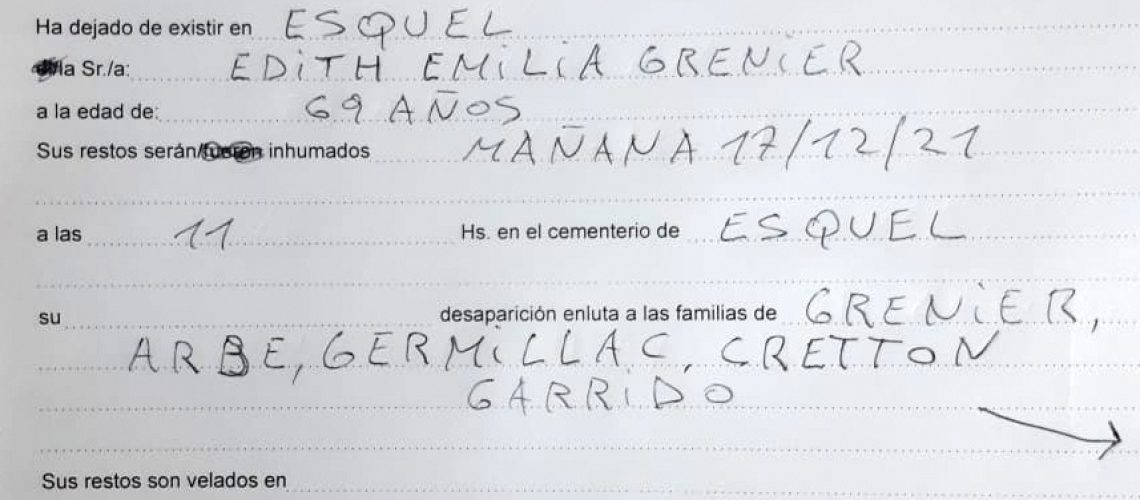 Ha dejado de existir en ESQUEL
la Sr./a: EDITH EMILIA GRENIER
a la edad de: 69 AÑOS
Sus restos serán/fueron inhumados MAÑANA 17/12/21
a las 11 Hs. en el cementerio de ESQUEL
su desaparición enluta a las familias de GRENIER,
ARBE, GERMILLAC, CRETTON
GARRIDO
Sus restos son velados en